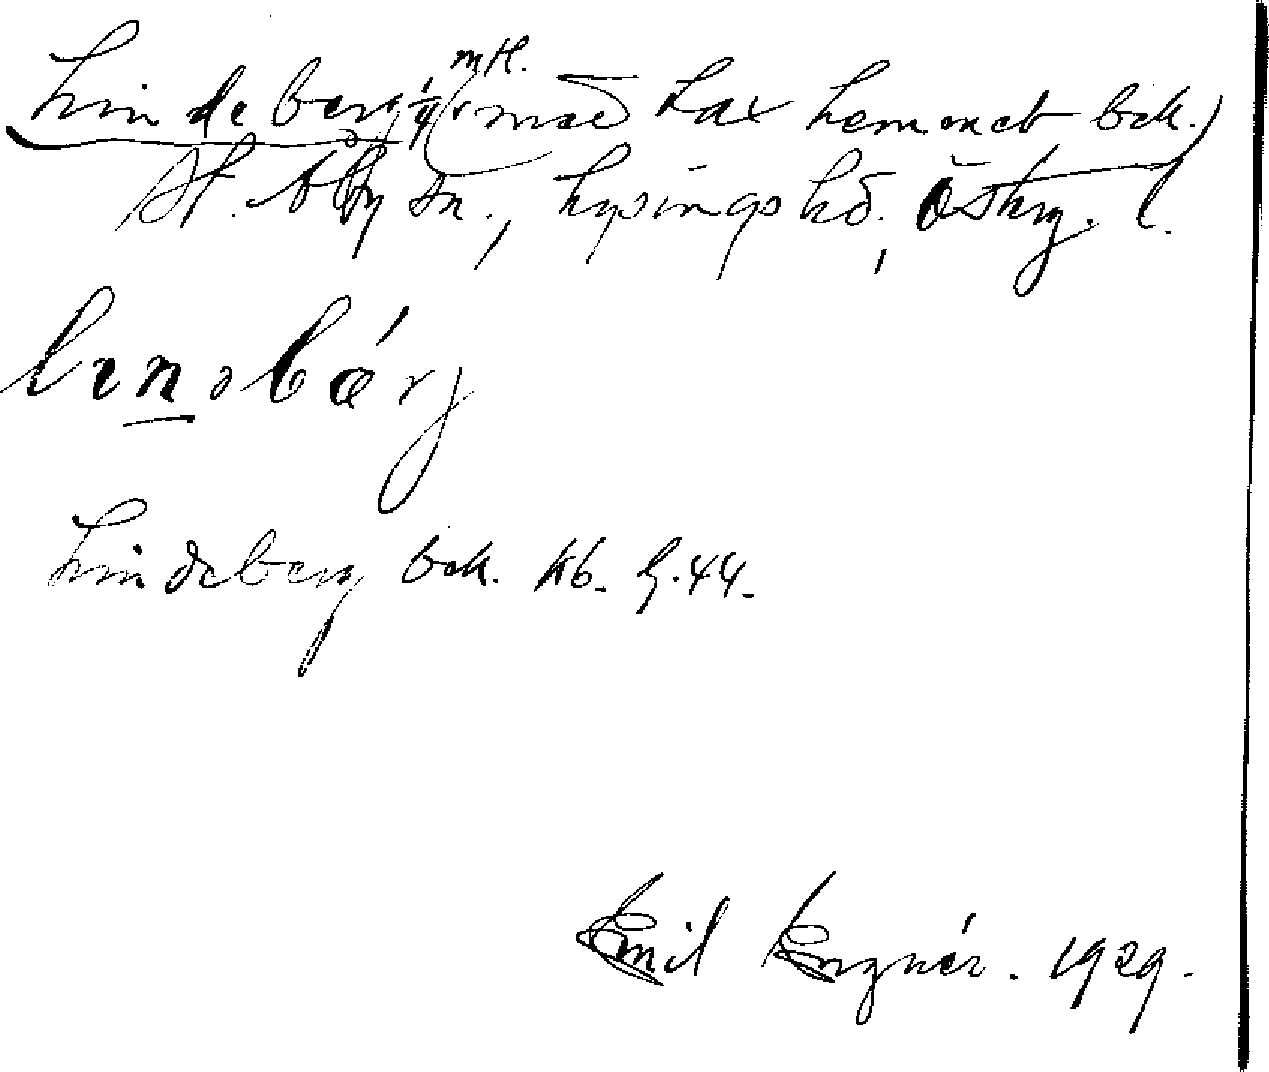 Lindeberg 1/4 mtl. (med Laxhemmet bck.)
St. Åby sn., Lysings hd., Östrg. l.
lɪn̲əbǽrj
Lindeberg bck. kb. G.44.
Emil Engnér. 1929.